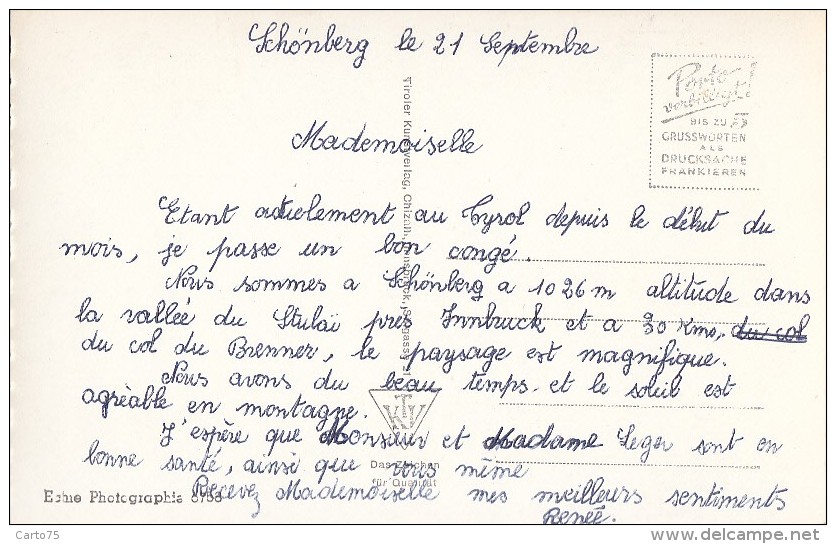 Schönberg le 21 Septembre
Porto verbilligt!
BIS ZU 5
GRUSSWORTEN
ALS
DRUCKSACHE
FRANKIEREN
Mademoiselle
Etant actuelement au Tyrol depuis le début du
mois, je passe un bon congé.
Nous sommes a Schönberg a 1026 m altitude dans
la vallée du Stulaï pres Innbruck et a 30 Kms, du col
du col du Brenner, le paysage est magnifique.
Nous avons du beau temps et le soleil est
agréable en montagne.
J'espère que Monsieur et Madame Leger sont en
bonne santé, ainsi que vous même
Recevez Mademoiselle mes meilleurs sentiments
Renée.
Tiroler Kunstverlag, Chizzali, Innsbruck,
TKV
Das Zeichen
für Qualität
Echte Photographie
Carto75
delcampe.net